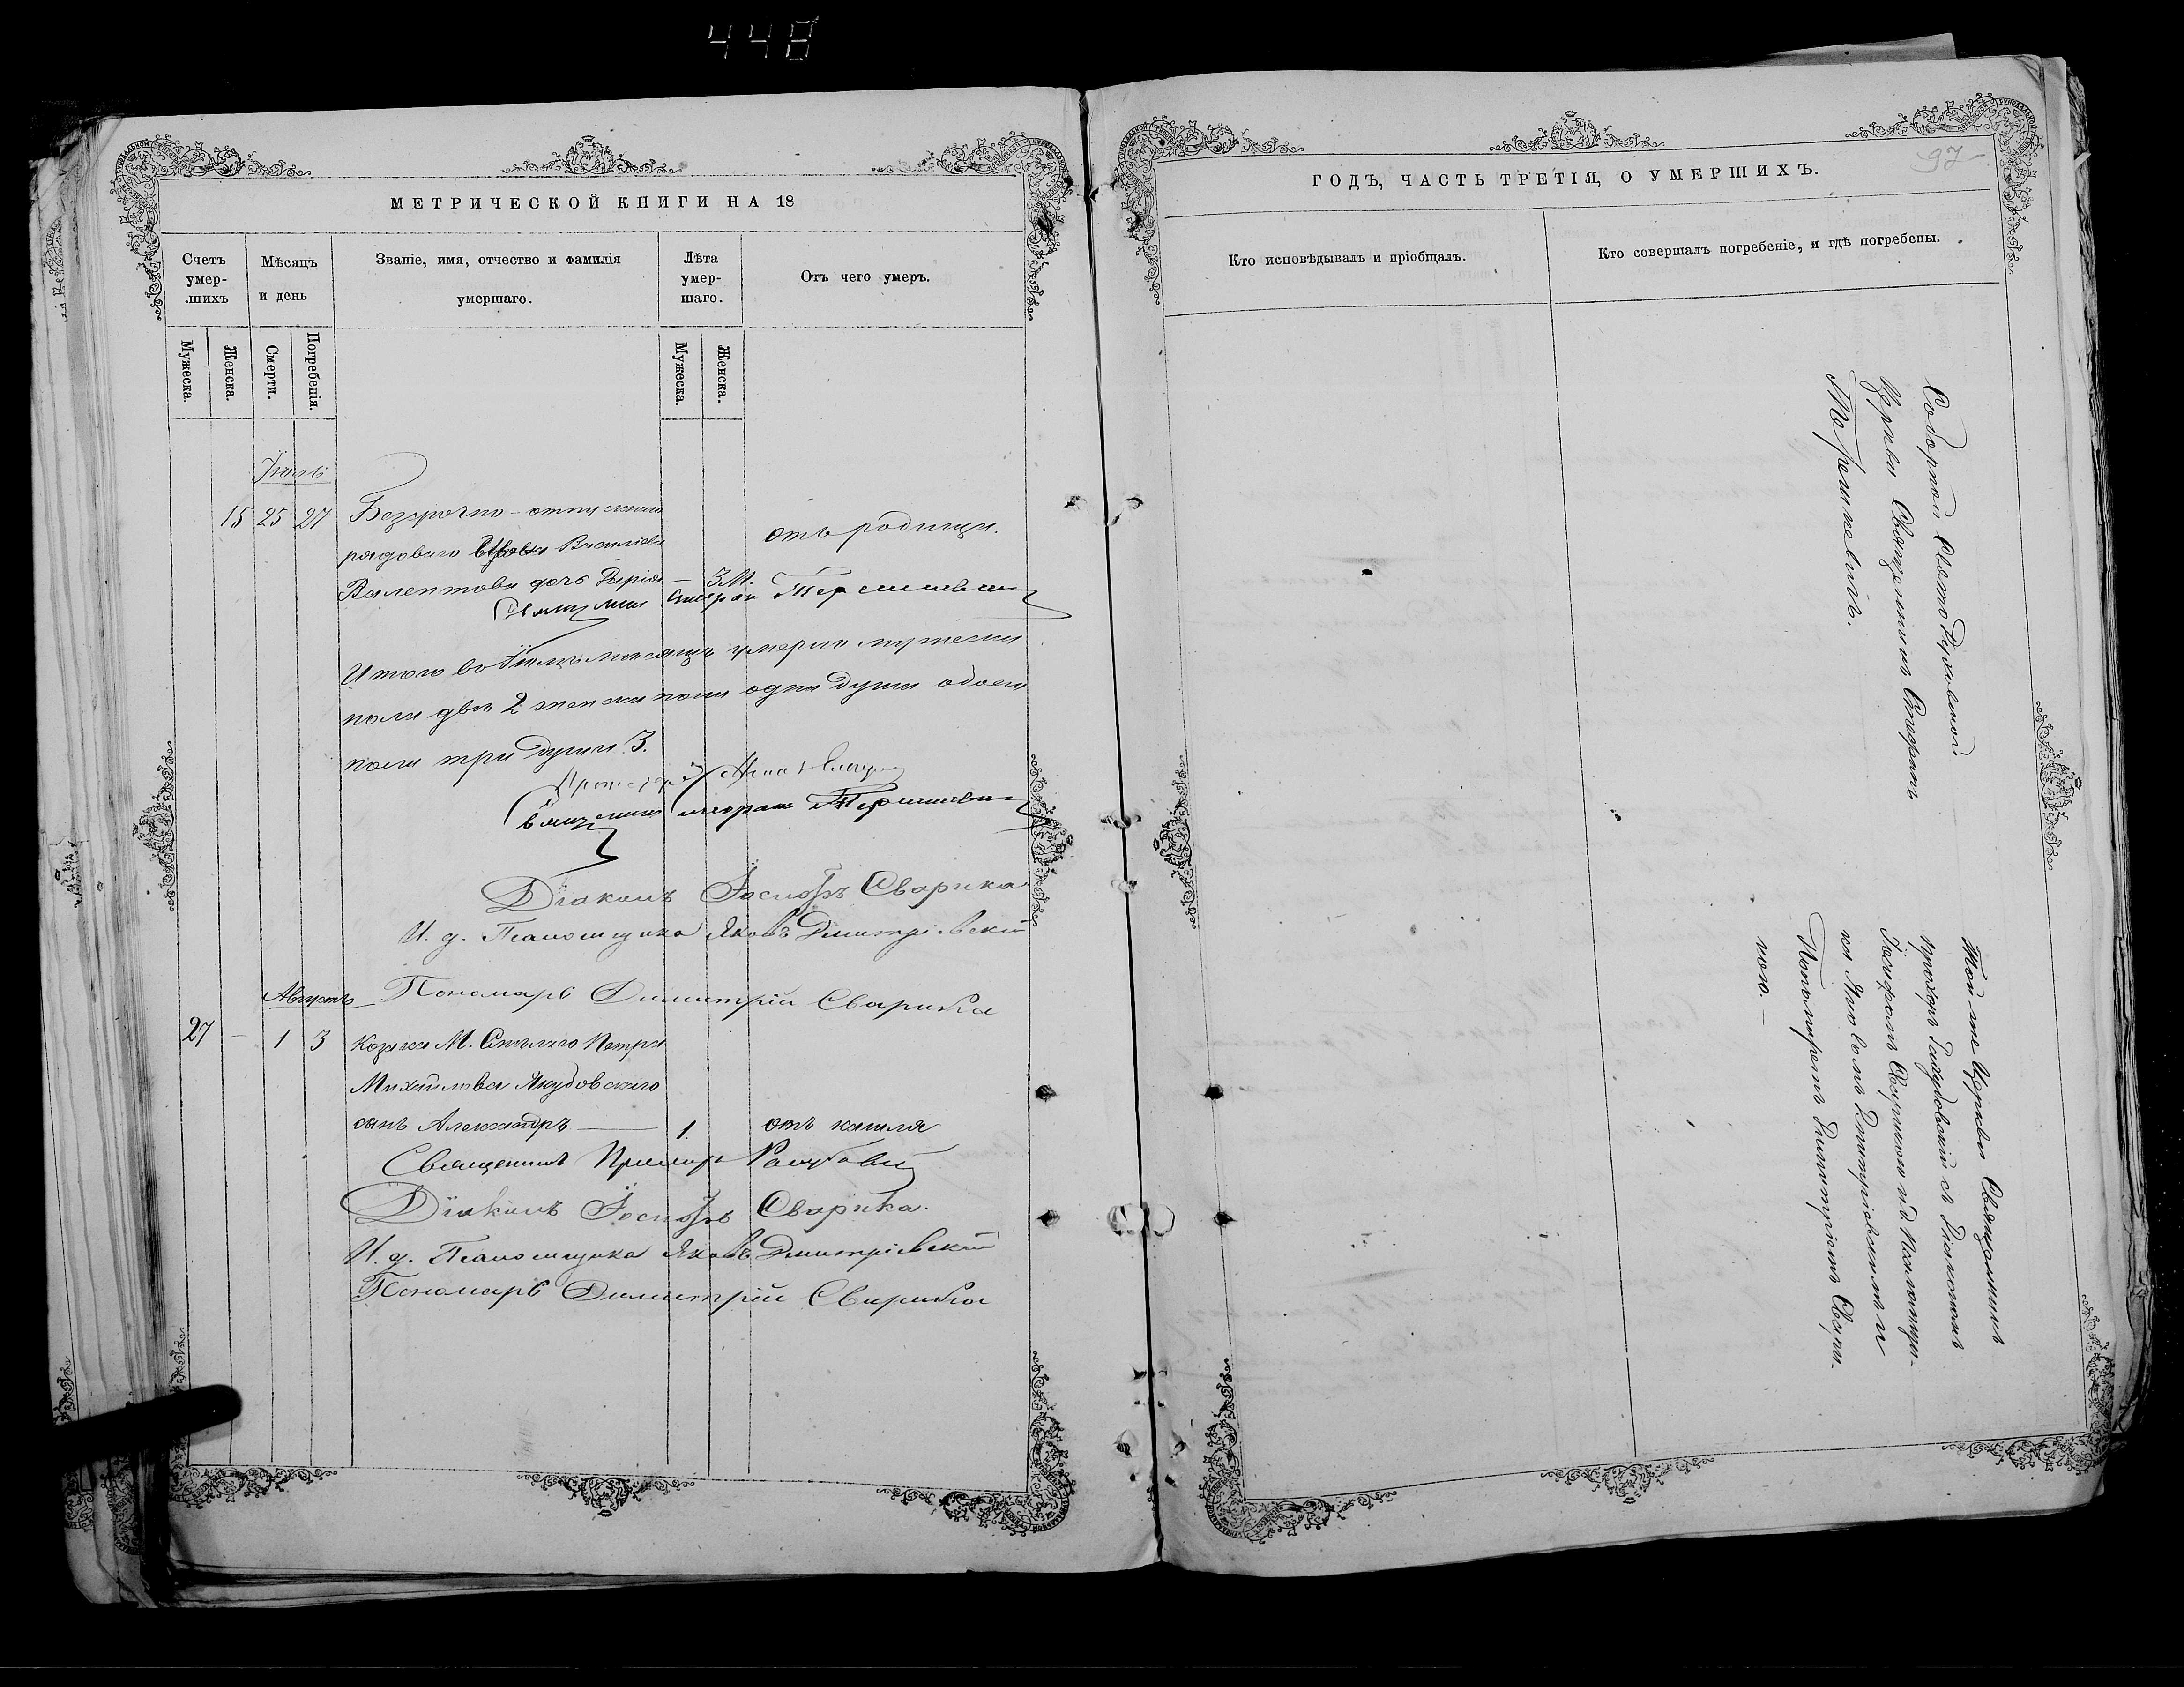 448
МЕТРИЧЕСКОЙ КНИГИ НА 18
Счетъ умер-.шихъ
Мѣсяцъ и день
Званіе, имя, отчество и фамилія умершаго.
Лѣта умер-шаго.
Отъ чего умеръ.
Мужеска.
Женска.
Смерти.
Погребенія.
Мужеска.
Женска.
Іюль
15 25 27 Безсрочно-отпускнаго
рядоваго Василія
отъ родимца.
дочь Марія — 3 М.
Священникъ Стефанъ Терешкевичъ
Итого въ Іюлѣ мѣсяцѣ умерло мужеска
пола двѣ 2 женска пола одна душа обоего
пола три души 3.
Священникъ Стефанъ Терешкевичъ
Діаконъ Іосифъ Сварика
И. д. Псаломщика Яковъ Дмитріевскій
Пономарь Димитрій Сварика
Августъ
27 — 1 3 козака М. Петра
Михайлова Якубовскаго
сынъ Александръ — 1. отъ кашля
Священникъ
Діаконъ Іосифъ Сварика.
И. д. Псаломщика Яковъ Дмитріевскій
Пономарь Димитрій Сварика
97
ГОДЪ, ЧАСТЬ ТРЕТІЯ, О УМЕРШИХЪ.
Кто исповѣдывалъ и пріобщалъ.
Кто совершалъ погребеніе, и гдѣ погребены.
Соборной Свято Духовной
Церкви Священникъ Стефанъ
Терешкевичъ.
Той же Церкви Священникъ
съ Діакономъ
Іосифомъ Сварикою и. д. Псаломщи-
ка Яковомъ Дмитріевскимъ и
Пономаремъ Димитріемъ Свари-
кою. —